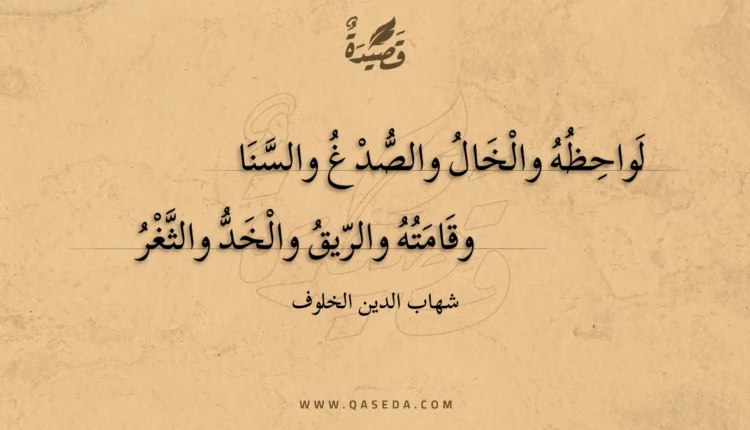 قَصِيدَةٌ
لَواحِظُهُ والْخَالُ والصُّدْغُ والسَّنَا
وقَامَتُهُ والرّيقُ والْخَدُّ والثَّغْرُ
شهاب الدين الخلوف
WWW.QASEDA.COM